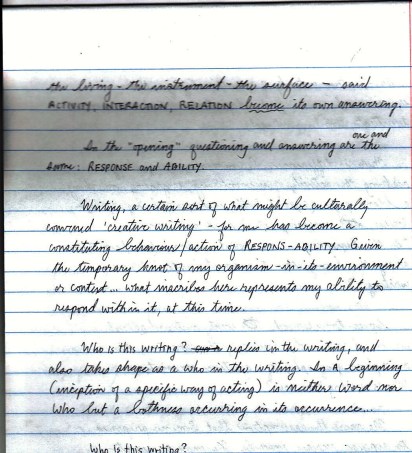 the living - the instrument - the surface - said
ACTIVITY, INTERACTION, RELATION become its own answering.
In the "opening" questioning and answering are the one and
same: RESPONSE and ABILITY.
Writing, a certain sort of what might be culturally
convened 'creative writing' - for me has become a
constituting behaviour/action of RESPONS-ABILITY. Given
the temporary knot of my organism-in-its-environment
or context... what inscribes here represents my ability to
respond within it, at this time.
Who is this writing? replies in the writing, and
also takes shape as a who in the writing. In a beginning
(inception of a specific way of acting) is neither Word nor
Who but a bothness occurring in its occurrence...
Who is this writing?